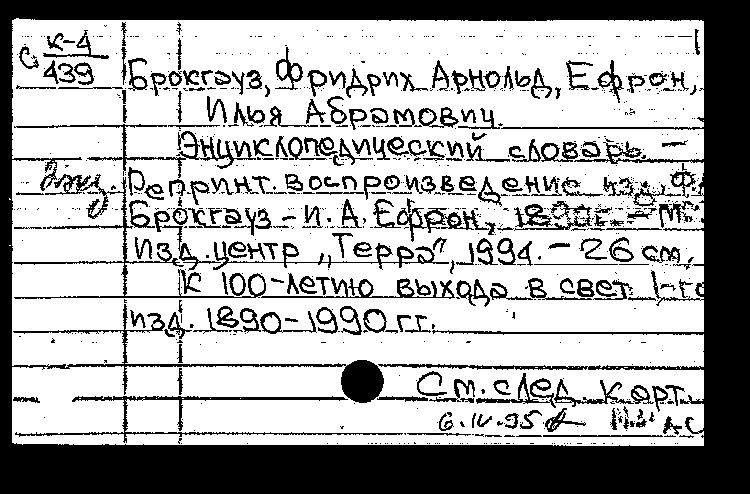 1
С К-4
439
Брокгауз, Фридрих Арнольд, Ефрон,
Илья Абрамович.
Энциклопедический словарь. —
Репринт. воспроизведение изд. Ф.
Брокгауз – И. А. Ефрон, 1890г. – М.:
Изд. центр „Терра", 1994. – 26 см.
К 100-летию выхода в свет 1-го
изд. 1890-1990 гг.
См. след. карт.
6.IV.95